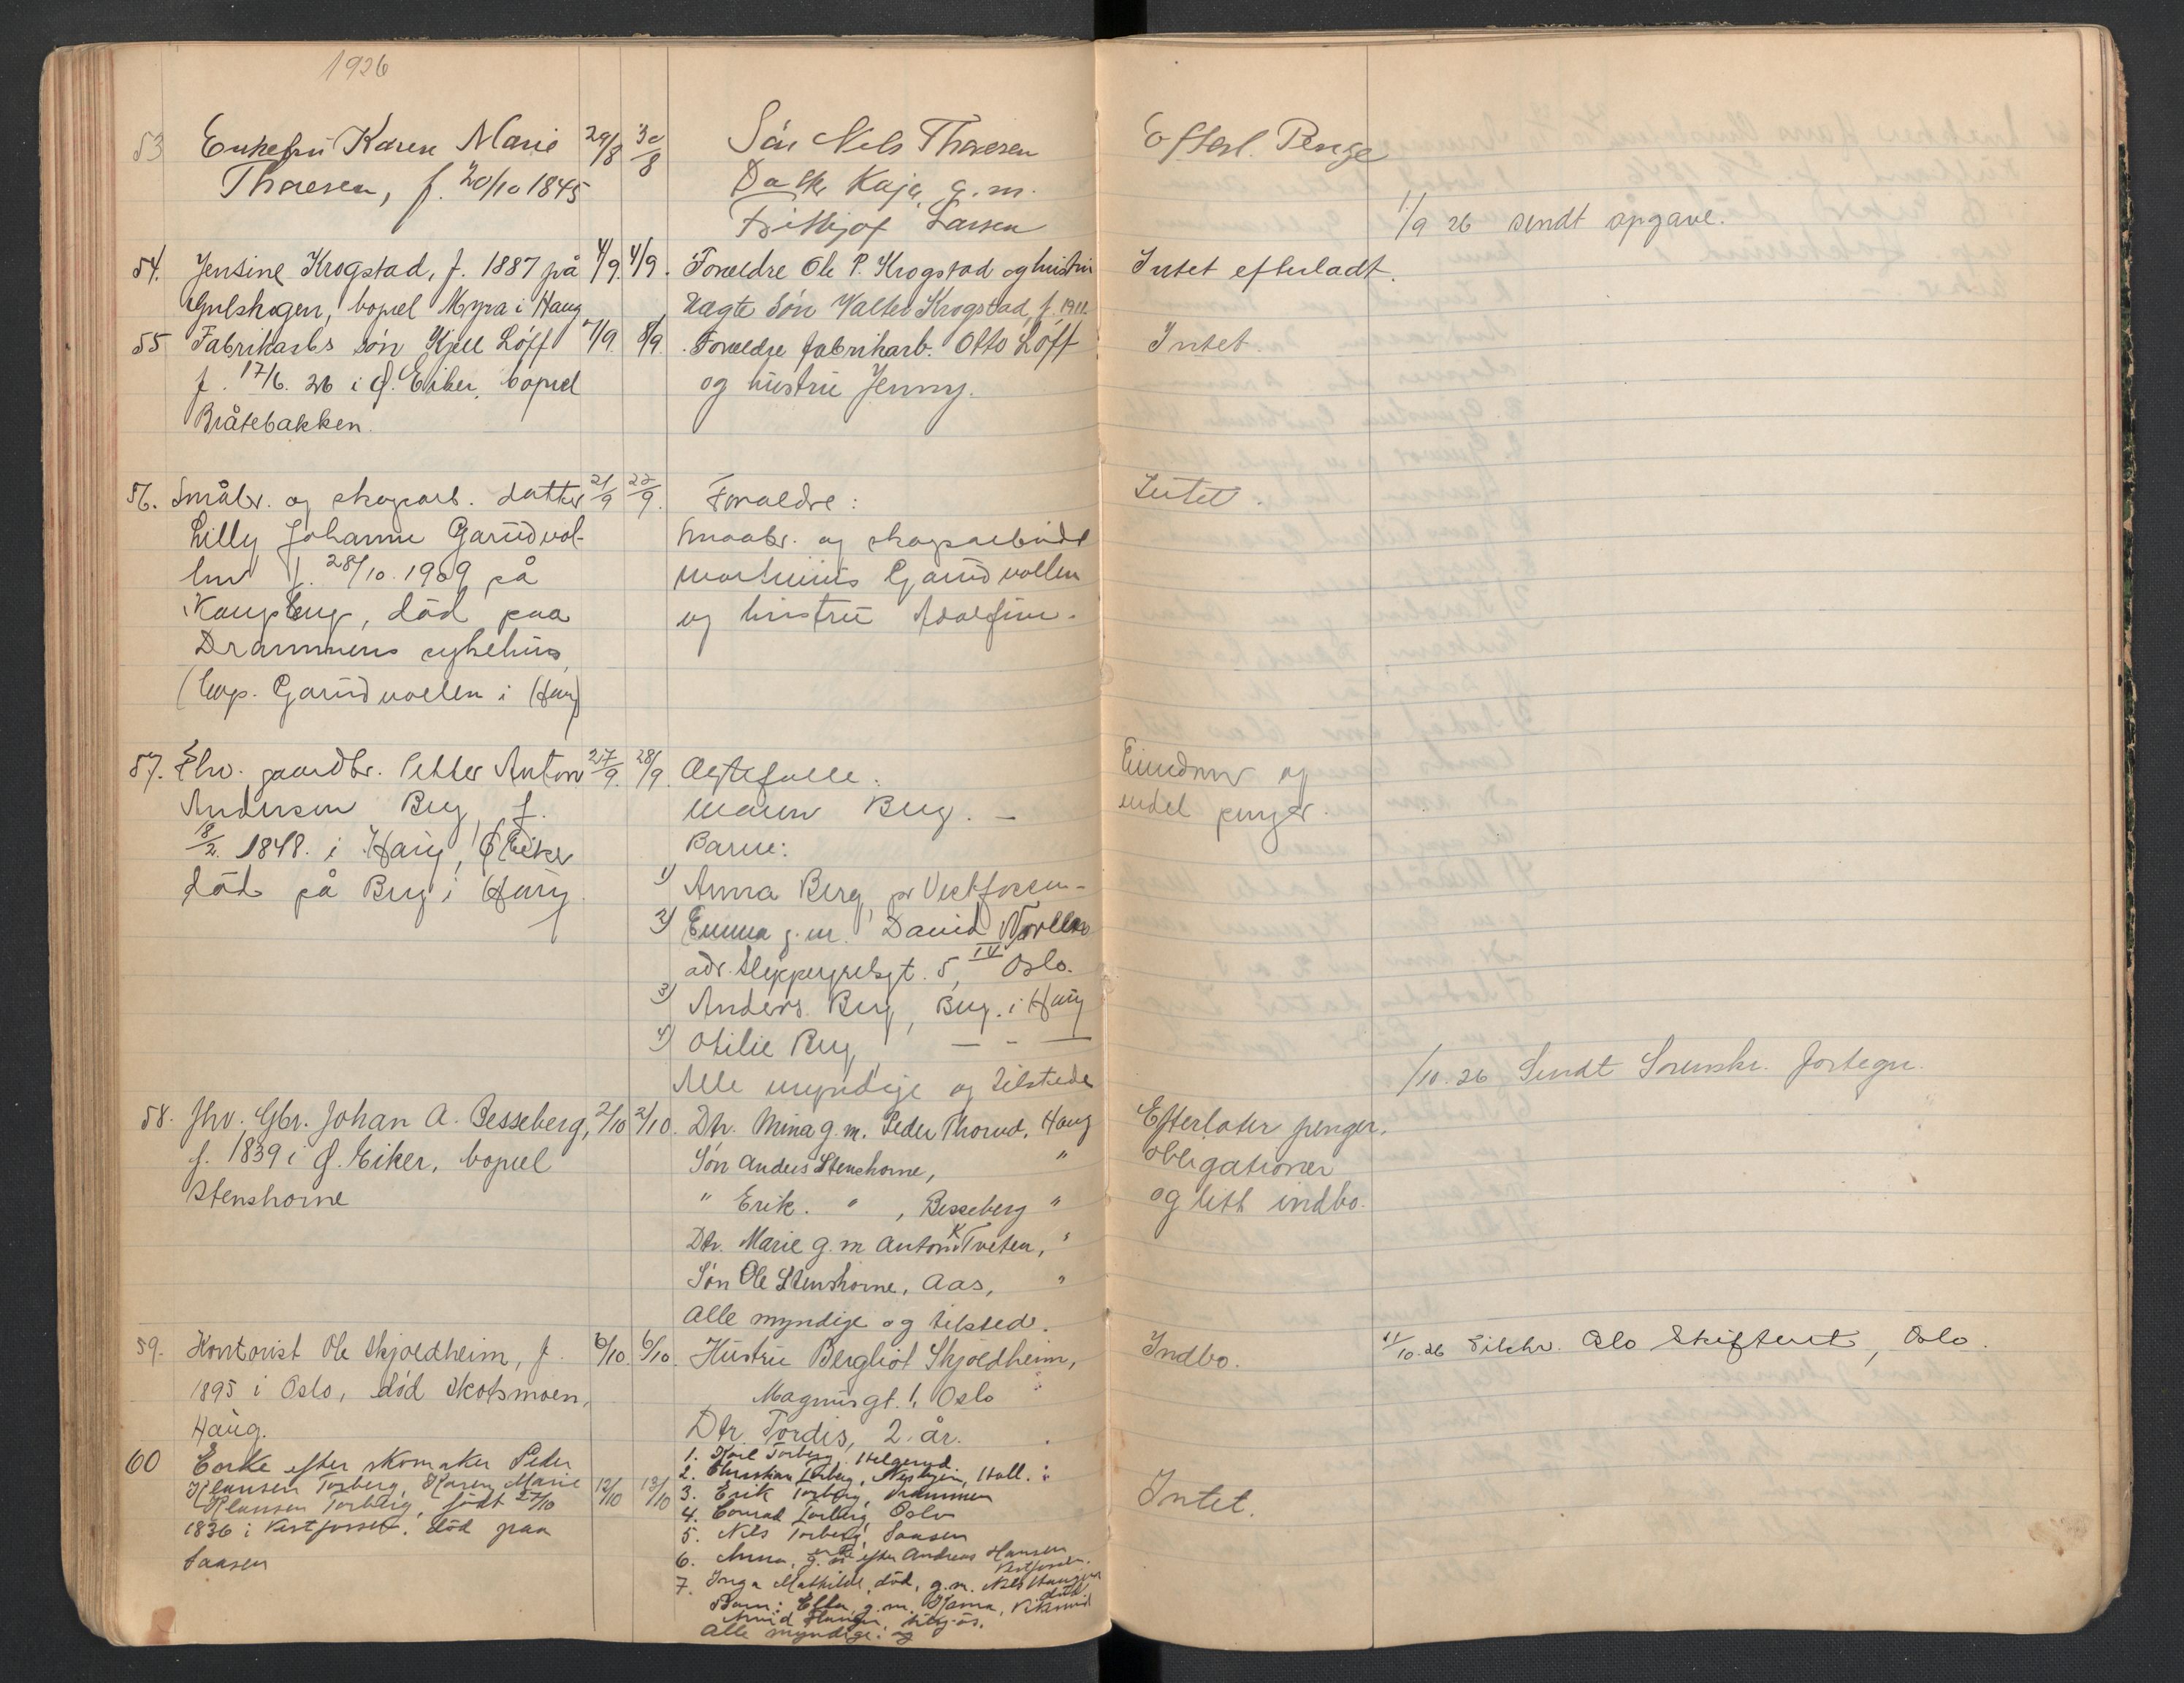 1926
53 Enkefru Karen Marie 29/8 30/8 Søn Nils Thoresen Efterl. Penge
Thoresen, f. 20/10 1845 Datter Kaja, g.m.
Frithjof Larsen 1/9 26 sendt opgave.
54. Jensine Krogstad, f. 1887 på 4/9. 4/9. Forældre Ole P. Krogstad og hustru Intet efterladt.
Gulskogen, bopæl Myra i Haug Uægte søn Valter Krogstad, f. 1911.
55 Fabrikarbs søn Kjell Löff 7/9. 8/9. Forældre fabrikarb. Otto Löff Intet.
f. 17/6. 26 i Ø. Eiker, bopæl og hustru Jenny.
Bråtebakken.
56. Småbr. og skogarb. datter 21/9 22/9. Foraldre: Intet.
Lilly Johanne Garudvol- Smaabr. og skogsarbeider
len f. 28/10. 1909 på Martinius Garudvollen
, död paa og hustru Adolfine.
Drammens sykehus,
(bop. Garudvollen i Haug)
57. Fhv. gaardbr. Petter Anton 27/9. 28/9. Ægtefælle: Eiendom og
Andersen Berg f. Maren Berg. — endel penger.
18/2. 1848. i Haug, Ø Eiker Barn:
död på Berg i Haug. 1) Anna Berg, pr Vestfossen -
2) Emma g.m. David
adr. Sleppegrelsgt. 5, IV Oslo.
3) Anders Berg, Berg. i Haug
4) Otilie Berg, — - —
Alle myndige og tilstede /10. 26 Sendt Sorenskr. fortegn.
58. Fhv. Gbr. Johan A. Besseberg, 2/10 2/10. Dtr. Mina g.m. Peder Thorud, Haug Efterlater penger,
f. 1839 i Ø. Eiker, bopæl Søn Anders Stenshorne, " obligationer
Stenshorne " Erik. " , Besseberg " og litt indbo.
Dtr. Marie g.m Anton K Tveten, "
Søn Ole Stenshorne, Aas, "
Alle myndige og tilsted.
59. Kontorist Ole Skjoldheim, f. 6/10. 6/10. Hustru Bergliot Skjoldheim, Indbo. 11/10.26 Tilskr. Oslo Skifterett, Oslo.
1895 i Oslo, död Skotsmoen, Magnusgt. 1, Oslo
Haug. Dtr. Tordis, 2 år.
60 Enke efter skomaker Peder 1. Karl Torberg, Helgerud
Klausen Torberg, Karen Marie 12/10 13/10 2. Christian Torberg, Nesbyen, Hall. Intet.
Klausen Torberg, født 27/10 3. Erik Torberg, Drammen
1836 i Vestfossen. död paa 4. Conrad Torberg, Oslo
Saasen 5. Nils Torberg, Saasen
6. Anna, enke efter Andreas Hansen
Vestfossen.
7. Inga Mathilde, död, g.m. Nils Haugen
död
Barn: Ella g.m. Hjema,
Arvid Haugen,
Alle myndige. og